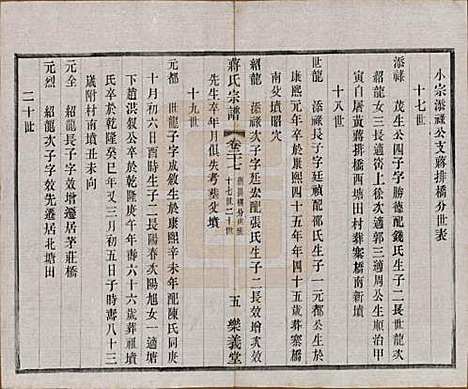 小宗添祿公支蔣排橋分世表
十七世
添祿 茂生公四子字勝德配錢氏生子二長世龍次
紹龍女三適蔣上徐次適郭三適周公生順治甲
寅白居黃蔣排橋西塘田村葬寨橋南新墳
十八世
世龍 添祿長子字廷禎配邵氏生子一元都公生於
康熙元年卒於康熙四十五年年四十五歲葬寨橋
南父墳昭穴
紹龍 添祿次子字廷宏配張氏生子二長效增次效
先生卒年月俱失考葬父墳
十九世
蔣氏宗譜
卷三十二
十七世二十世
五
樂義堂
元都 世龍子字成效生於康熙辛未年配陳氏同庚
十月初六日酉時生子二長陽春次陽旭女一適塘
下趙洪叙公卒於乾隆庚午年年六十六歲葬祖塋
氏卒於乾隆癸巳年又三月初五日壽八十三
歲附村南墳丑未向
元全 紹龍長子字效增遷居茅莊橋
元烈 紹龍次子字效先遷居北塘田
二十世